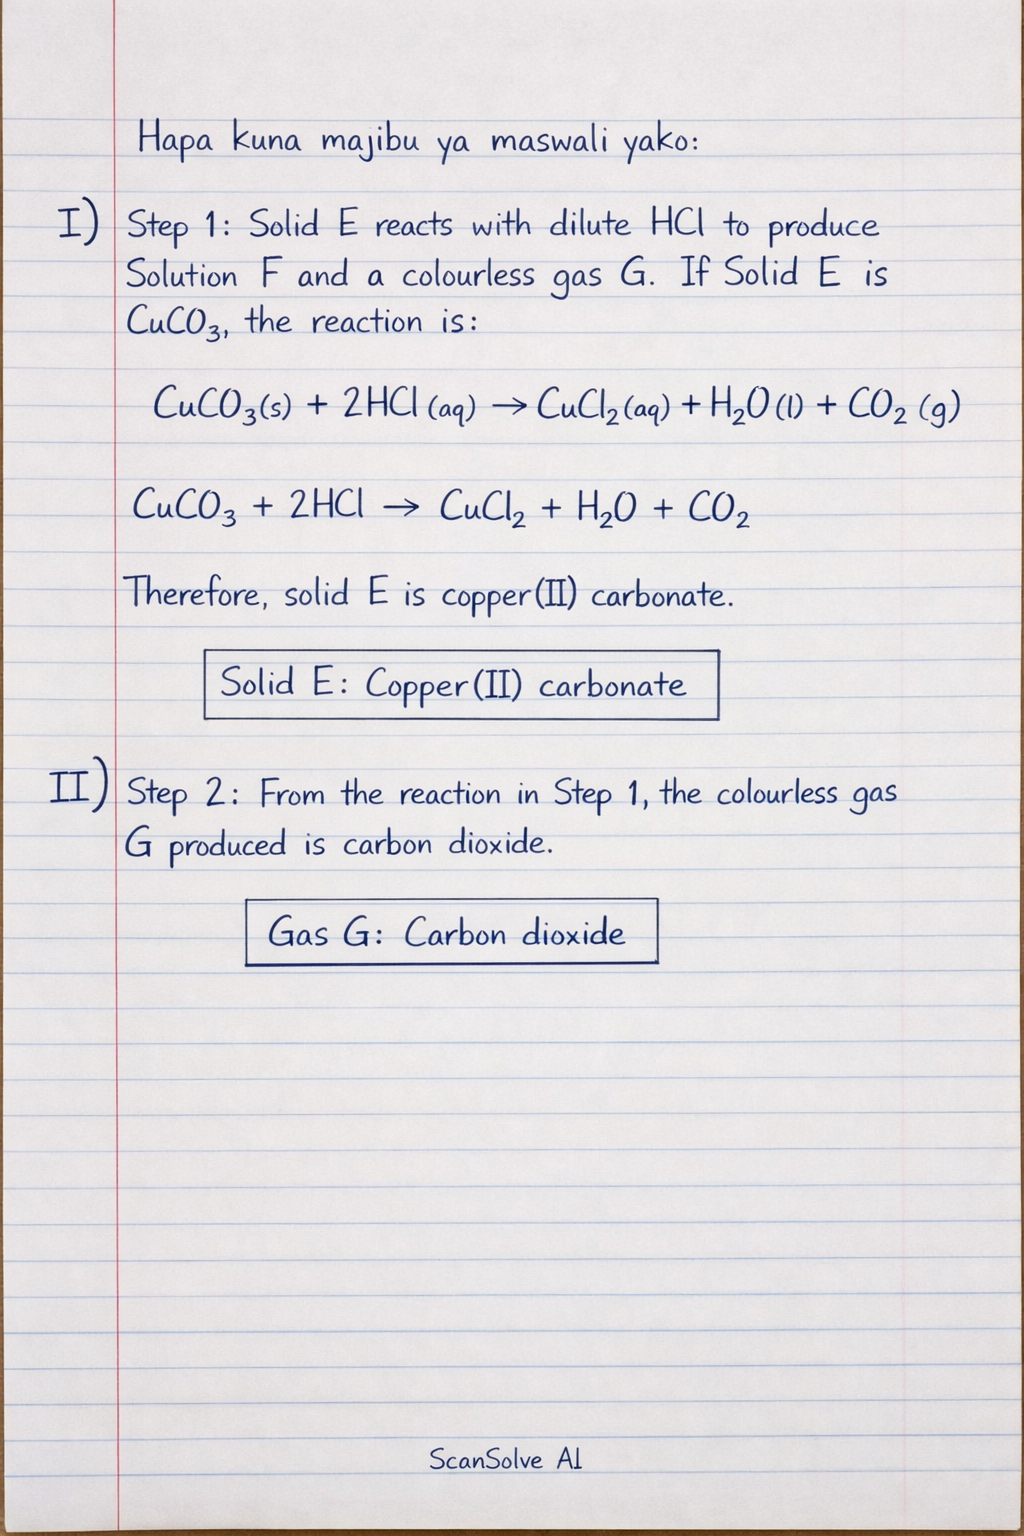 Hapa kuna majibu ya maswali yako:
I) Step 1: Solid E reacts with dilute HCl to produce
Solution F and a colourless gas G. If Solid E is
CuCO₃, the reaction is:
CuCO₃(s) + 2HCl (aq) → CuCl₂(aq) + H₂O(l) + CO₂ (g)
CuCO₃ + 2HCl → CuCl₂ + H₂O + CO₂
Therefore, solid E is copper(II) carbonate.
Solid E: Copper(II) carbonate
II) Step 2: From the reaction in Step 1, the colourless gas
G produced is carbon dioxide.
Gas G: Carbon dioxide
ScanSolve AI